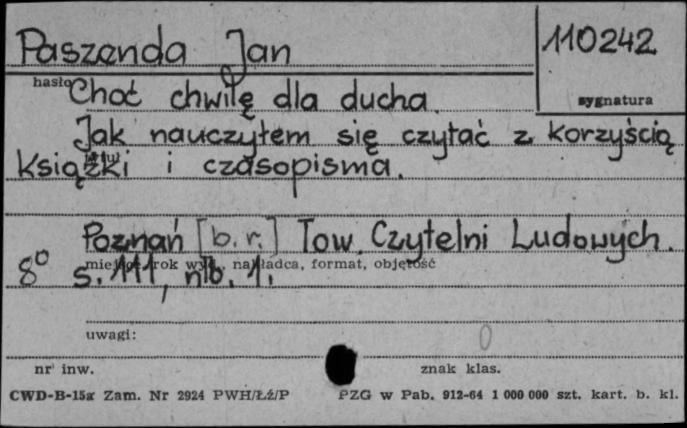 Paszenda Jan
110242
hasło
sygnatura
Choć chwilę dla ducha.
Jak nauczyłem się czytać z korzyścią
tytuł
książki i czasopisma.
Poznań [b.r.] Tow. Czytelni Ludowych.
miejsce, rok wyd., nakładca, format, objętość
8° s. 111, nlb. 1.
uwagi:
0
nr inw.
znak klas.
CWD-B-15a Zam. Nr 2924 PWH/Łź/P
PZG w Pab. 912-64 1 000 000 szt. kart. b. kl.